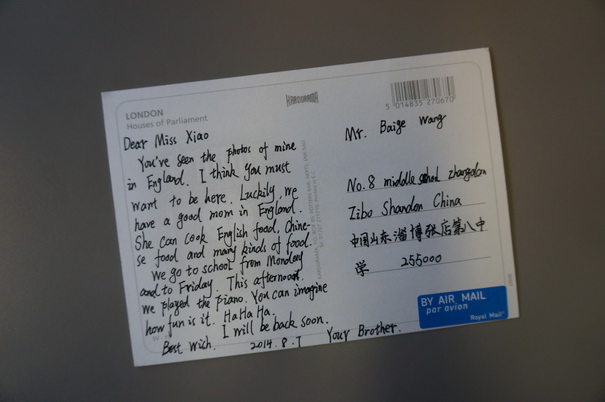 LONDON
Houses of Parliament
KARDORAMA
5 014835 270670
Dear Miss Xiao
You've seen the photos of mine
in England. I think you must
want to be here. Luckily, we
have a good mom in England.
She can cook English food, Chine-
se food and many kinds of food.
We go to school from Monday
and to Friday. This afternoon.
we played the piano. You can imagine
how fun is it. HaHaHa.
I will be back soon.
Best wich.
2014.8.7 Your Brother.
Mr. Baige Wang
No.8 middle school zhangdian
Zibo Shandon China
中国山东淄博张店第八中
学 255000
BY AIR MAIL
par avion
Royal Mail